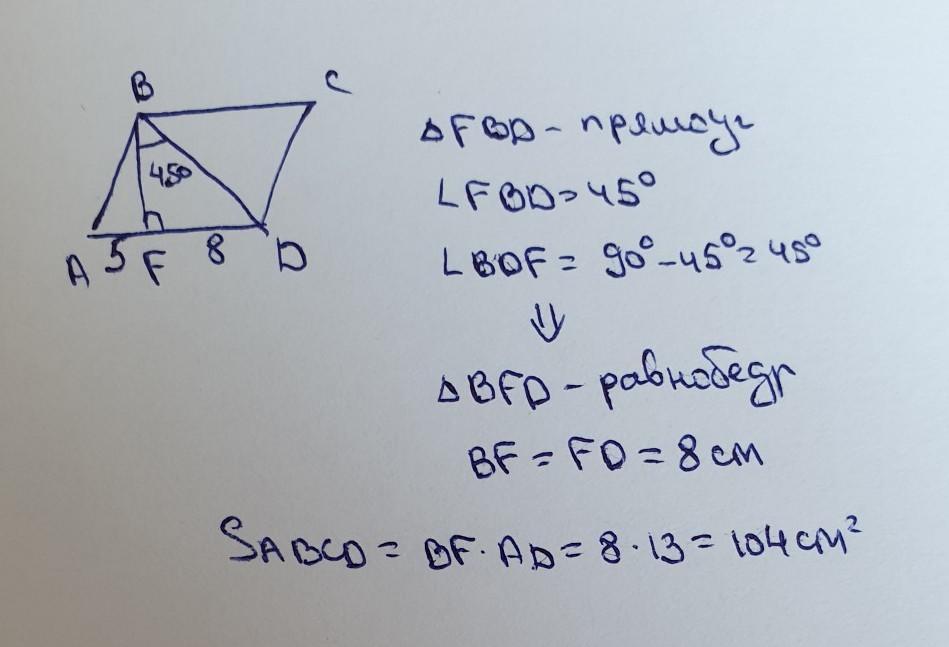 B C
45°
A 5 F 8 D
ΔFBD - прямоуг
∠FBD = 45°
∠BDF = 90° - 45° = 45°
⇓
ΔBFD - равнобедр
BF = FD = 8 см
SABCD = BF · AD = 8 · 13 = 104 см²